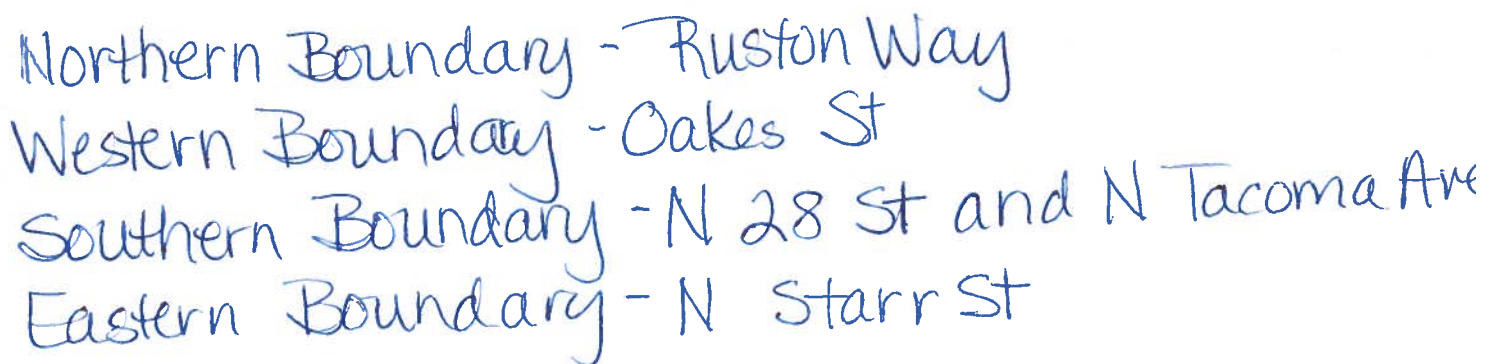 Northern Boundary - Ruston Way
Western Boundary - Oakes St
Southern Boundary - N 28 St and N Tacoma Ave
Eastern Boundary - N Starr St